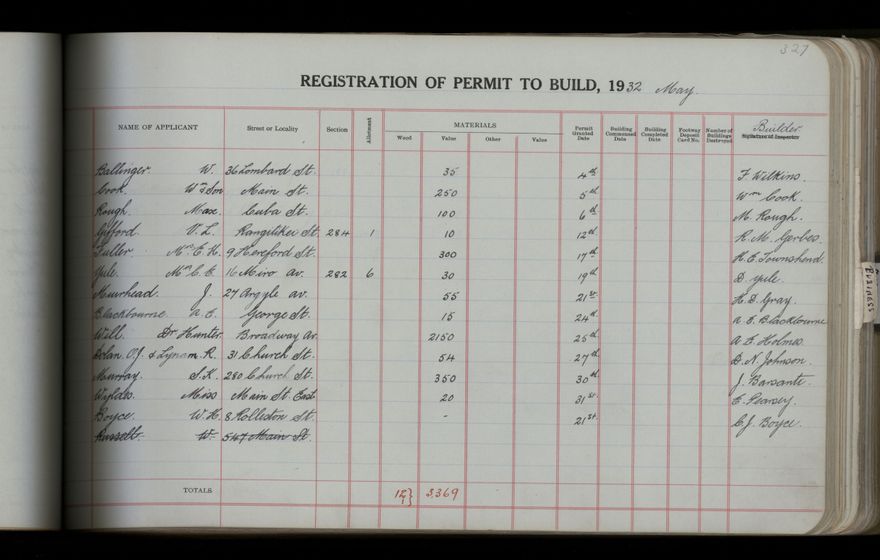 327
REGISTRATION OF PERMIT TO BUILD, 1932 May.
NAME OF APPLICANT Street or Locality Section Allotment MATERIALS Wood Value Other Value Permit Granted Date Building Commenced Date Building Completed Date Footway Deposit Card No. Number of Buildings Destroyed Builder Signature of Inspector
Ballinger W. 36 Lombard St. 35 4th F. Wilkins.
Cook Wm & Son Main St. 250 5th Wm Cook.
Rough Max. Cuba St. 100 6th M. Rough.
Gifford V. L. Rangitikei St. 284 1 10 12th R. M. Gerbes.
Fuller Mrs E. H. 9 Hereford St. 300 17th H. E. Townshend.
Yule. Mrs C. E. 16 Miro Av. 282 6 30 19th D. Yule.
Muirhead. J. 27 Argyle Av. 55 21st H. B. Gray.
Blackbourne A. E. George St. 15 24th A. E. Blackbourne
Will. Dr Hunter Broadway Av. 2150 25th A. E. Holmes
Dolan. O. J. & Lynam. R. 31 Church St. 54 27th D. N. Johnson.
Murray. S. K. 280 Church St. 350 30th J. Barsante.
Wyldes Miss Main St. East 20 31st E. Pearsey.
Boyce. W. H. 8 Rolleston St. - 21st C. J. Boyce.
Russell W. 547 Main St.
TOTALS 12 } 1 3,369